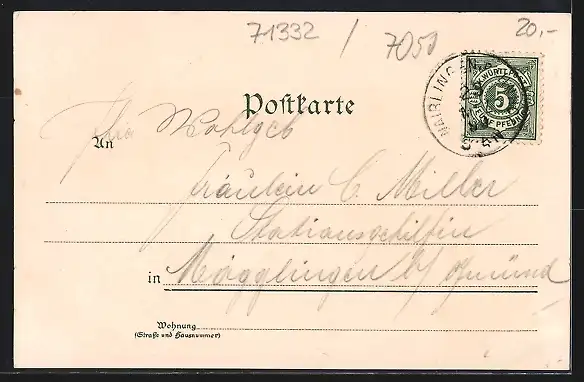 71332 / 7050 20,-
Postkarte
WAIBLINGEN
WÜRTTEMB
5
FÜNF PFENNIG
An
Ihro Wohlgeb
Fräulein C. Miller
Stationsgehilfin
in Mögglingen b/ Gmünd
Wohnung
(Straße und Hausnummer)